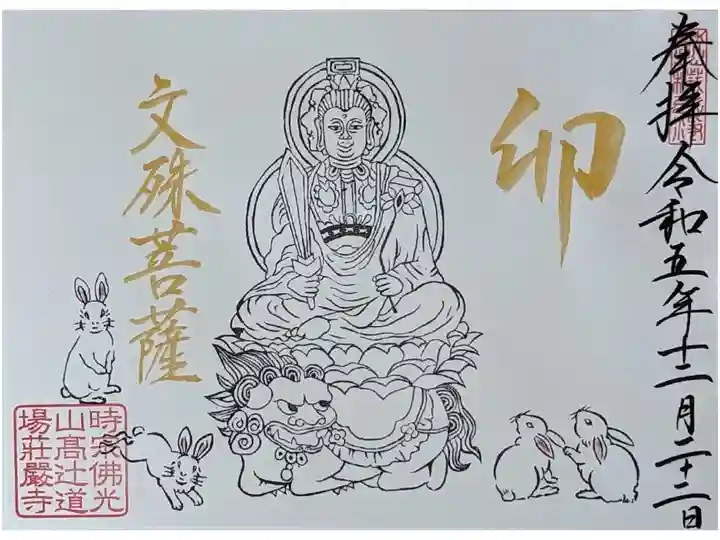 奉拝 令和五年十二月二十二日
卯
文殊菩薩
時宗佛光
山高辻道
場荘嚴寺